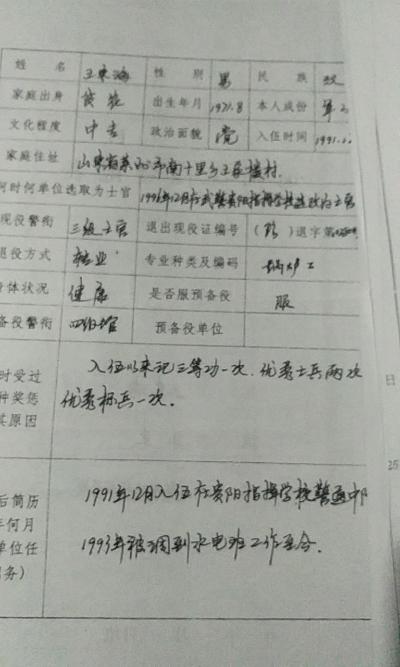 姓 名 王东海 性 别 男 民 族 汉
家庭出身 贫农 出生年月 1971.8 本人成份 军
文化程度 中专 政治面貌 党 入伍时间 1991.
家庭住址 山东省 市南十里乡王 楼村
何时何单位选取为士官 1996年12月在武警贵阳指挥学校选改为士官
现役警衔 三级士官 退出现役证编号 退字第
退役方式 转业 专业种类及编码 锅炉工
身体状况 健康 是否服预备役 服
备役警衔 预备役单位
时受过
种奖惩
其原因
入伍以来记三等功一次.优秀士兵两次
优秀标兵一次。
后简历
年何月
单位任
务)
1991年12月入伍在贵阳指挥学校警通中队
1993年被调到水电班工作至今.
日
25